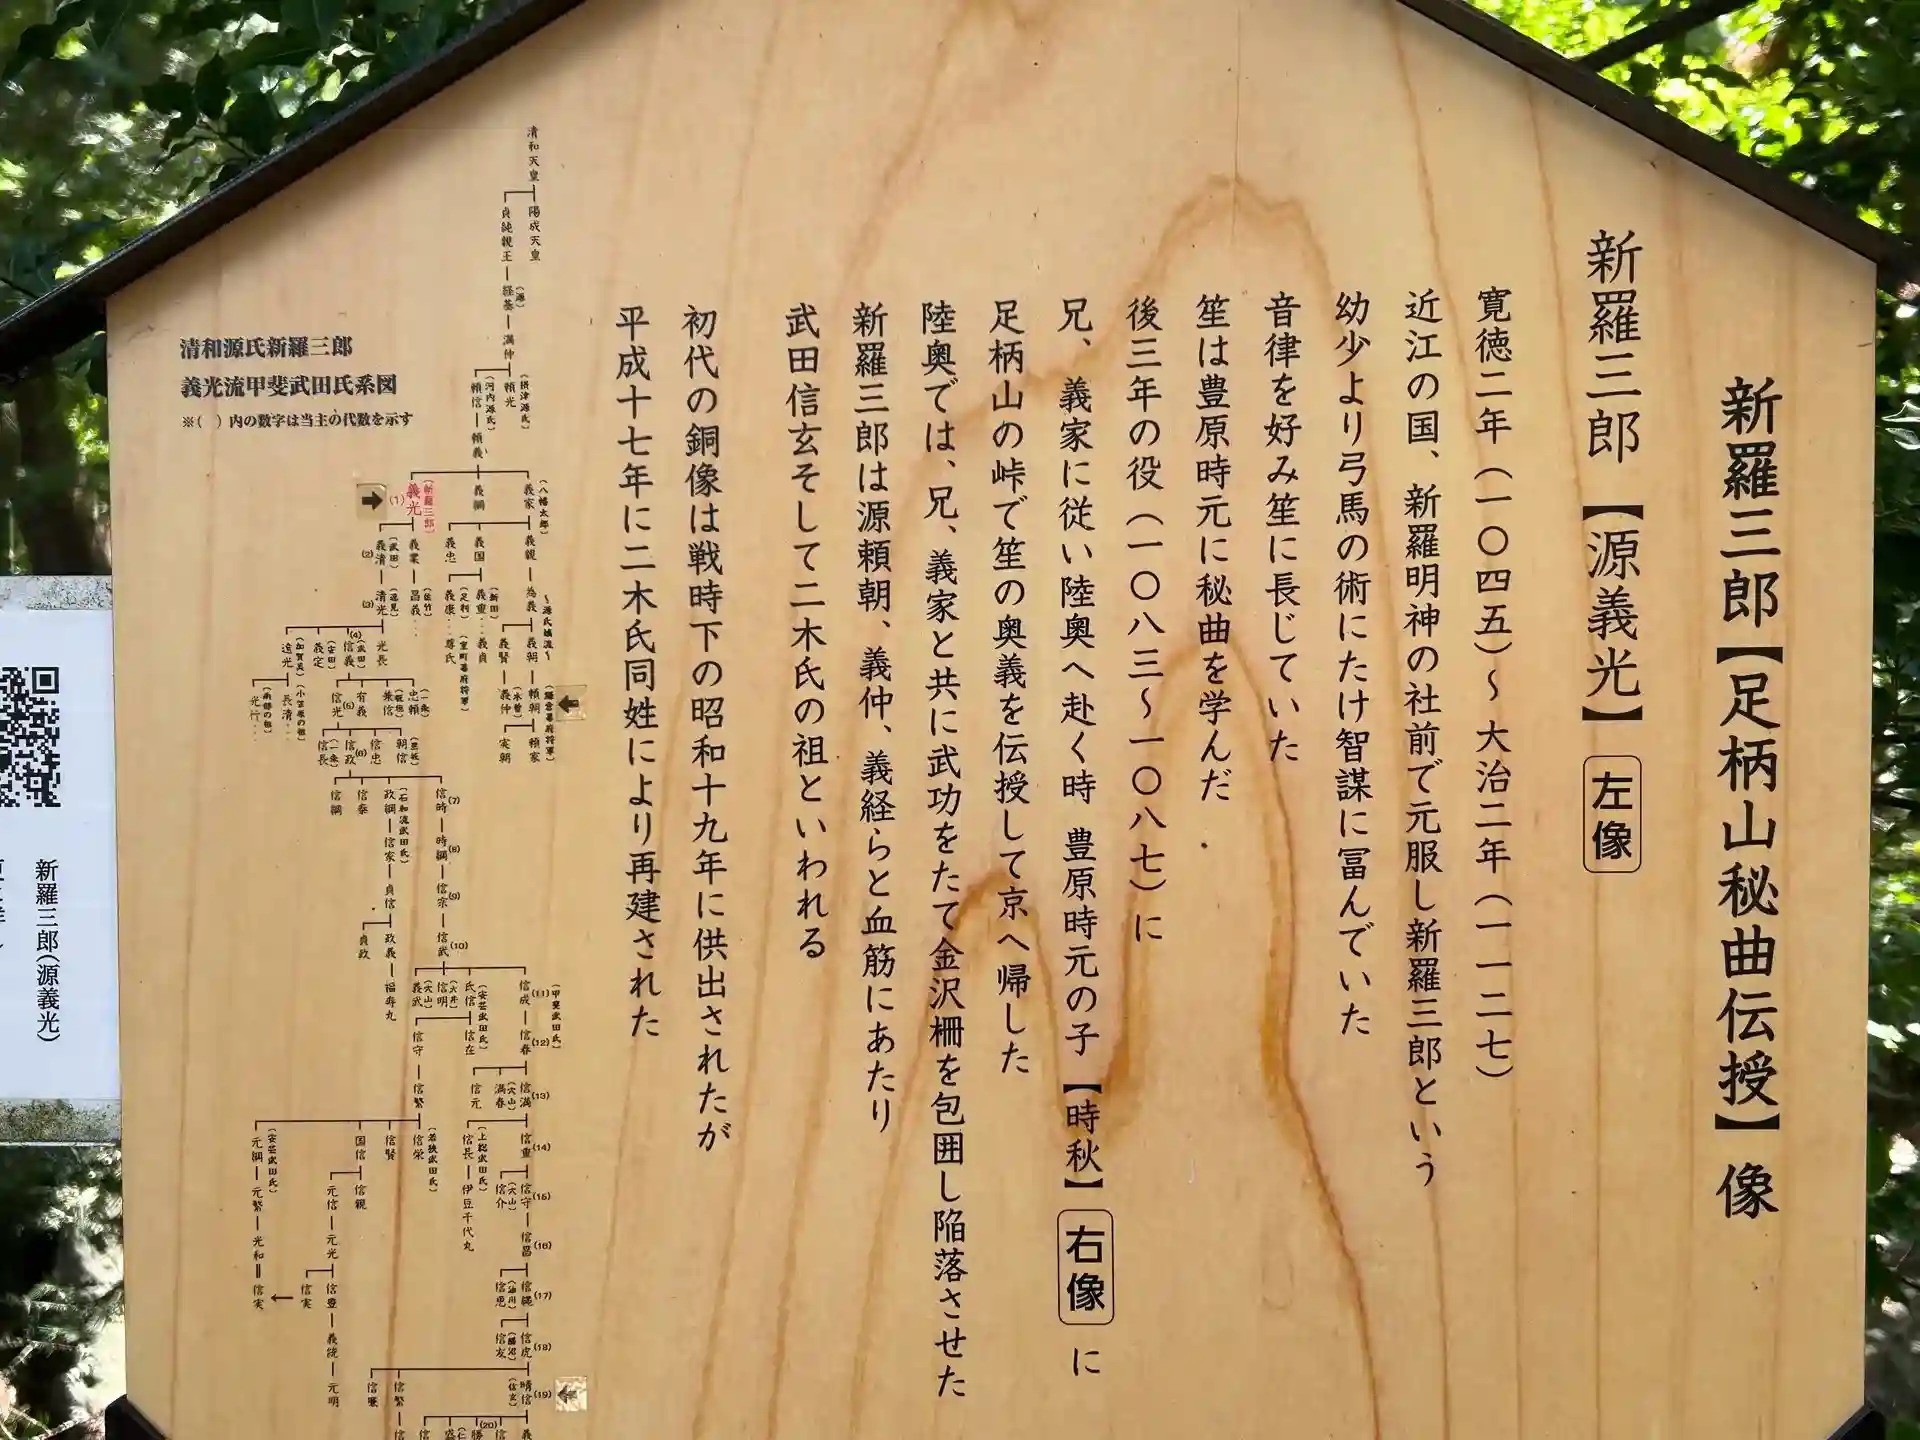 新羅三郎【足柄山秘曲伝授】像
新羅三郎【源義光】 左像
寛徳二年（一〇四五）～大治二年（一一二七）
近江の国、新羅明神の社前で元服し新羅三郎という
幼少より弓馬の術にたけ智謀に冨んでいた
音律を好み笙に長じていた
笙は豊原時元に秘曲を学んだ
後三年の役（一〇八三～一〇八七）に
兄、義家に従い陸奥へ赴く時 豊原時元の子【時秋】 右像 に
足柄山の峠で笙の奥義を伝授して京へ帰した
陸奥では、兄、義家と共に武功をたて金沢柵を包囲し陥落させた
新羅三郎は源頼朝、義仲、義経らと血筋にあたり
武田信玄そして二木氏の祖といわれる
初代の銅像は戦時下の昭和十九年に供出されたが
平成十七年に二木氏同姓により再建された
清和源氏新羅三郎
義光流甲斐武田氏系図
※（ ）内の数字は当主の代数を示す
清和天皇
陽成天皇
貞純親王
経基 (源)
満仲
頼光 (摂津源氏)
頼信 (河内源氏)
頼義
義家 (八幡太郎)
義綱
(1) 義光 (新羅三郎)
義親
義国
義忠
義業
(2) 義清 (武田)
為義
～源氏嫡流～
義重 (新田)
義康 (足利)
昌義 (佐竹)
(3) 清光 (逸見)
義朝
義賢
義貞
尊氏 (室町幕府将軍)
光長
(4) 信義 (武田)
義定 (安田)
遠光 (加賀美)
頼朝 (鎌倉幕府将軍)
義仲 (木曽)
忠頼 (一条)
兼信 (板垣)
有義
信光 (5)
長清 (小笠原の祖)
光行 (南部の祖)
頼家
実朝
朝信
信忠
信政 (6)
信長 (一条)
信時 (7)
政綱 (石和流武田氏)
信泰
信綱
時綱 (8)
信家
信宗 (9)
貞信
信武 (10)
政義
貞政
福寿丸
信成 (11) (甲斐武田氏)
氏信 (安芸武田氏)
信明 (大井)
義武 (穴山)
信春 (12)
信在
信守
信満 (13)
満春 (穴山)
信元
信繁
信重 (14)
信長 (上総武田氏)
信栄 (若狭武田氏)
信賢
国信
元綱 (安芸武田氏)
信守 (15)
信介 (穴山)
伊豆千代丸
信親
元信
元繁
信昌 (16)
元光
光和
信縄 (17)
信恵
信豊
信実
信実
信虎 (18)
信友
義統
晴信 (19) (信玄)
信繁
信廉
元明
(20)
新羅三郎(源義光)